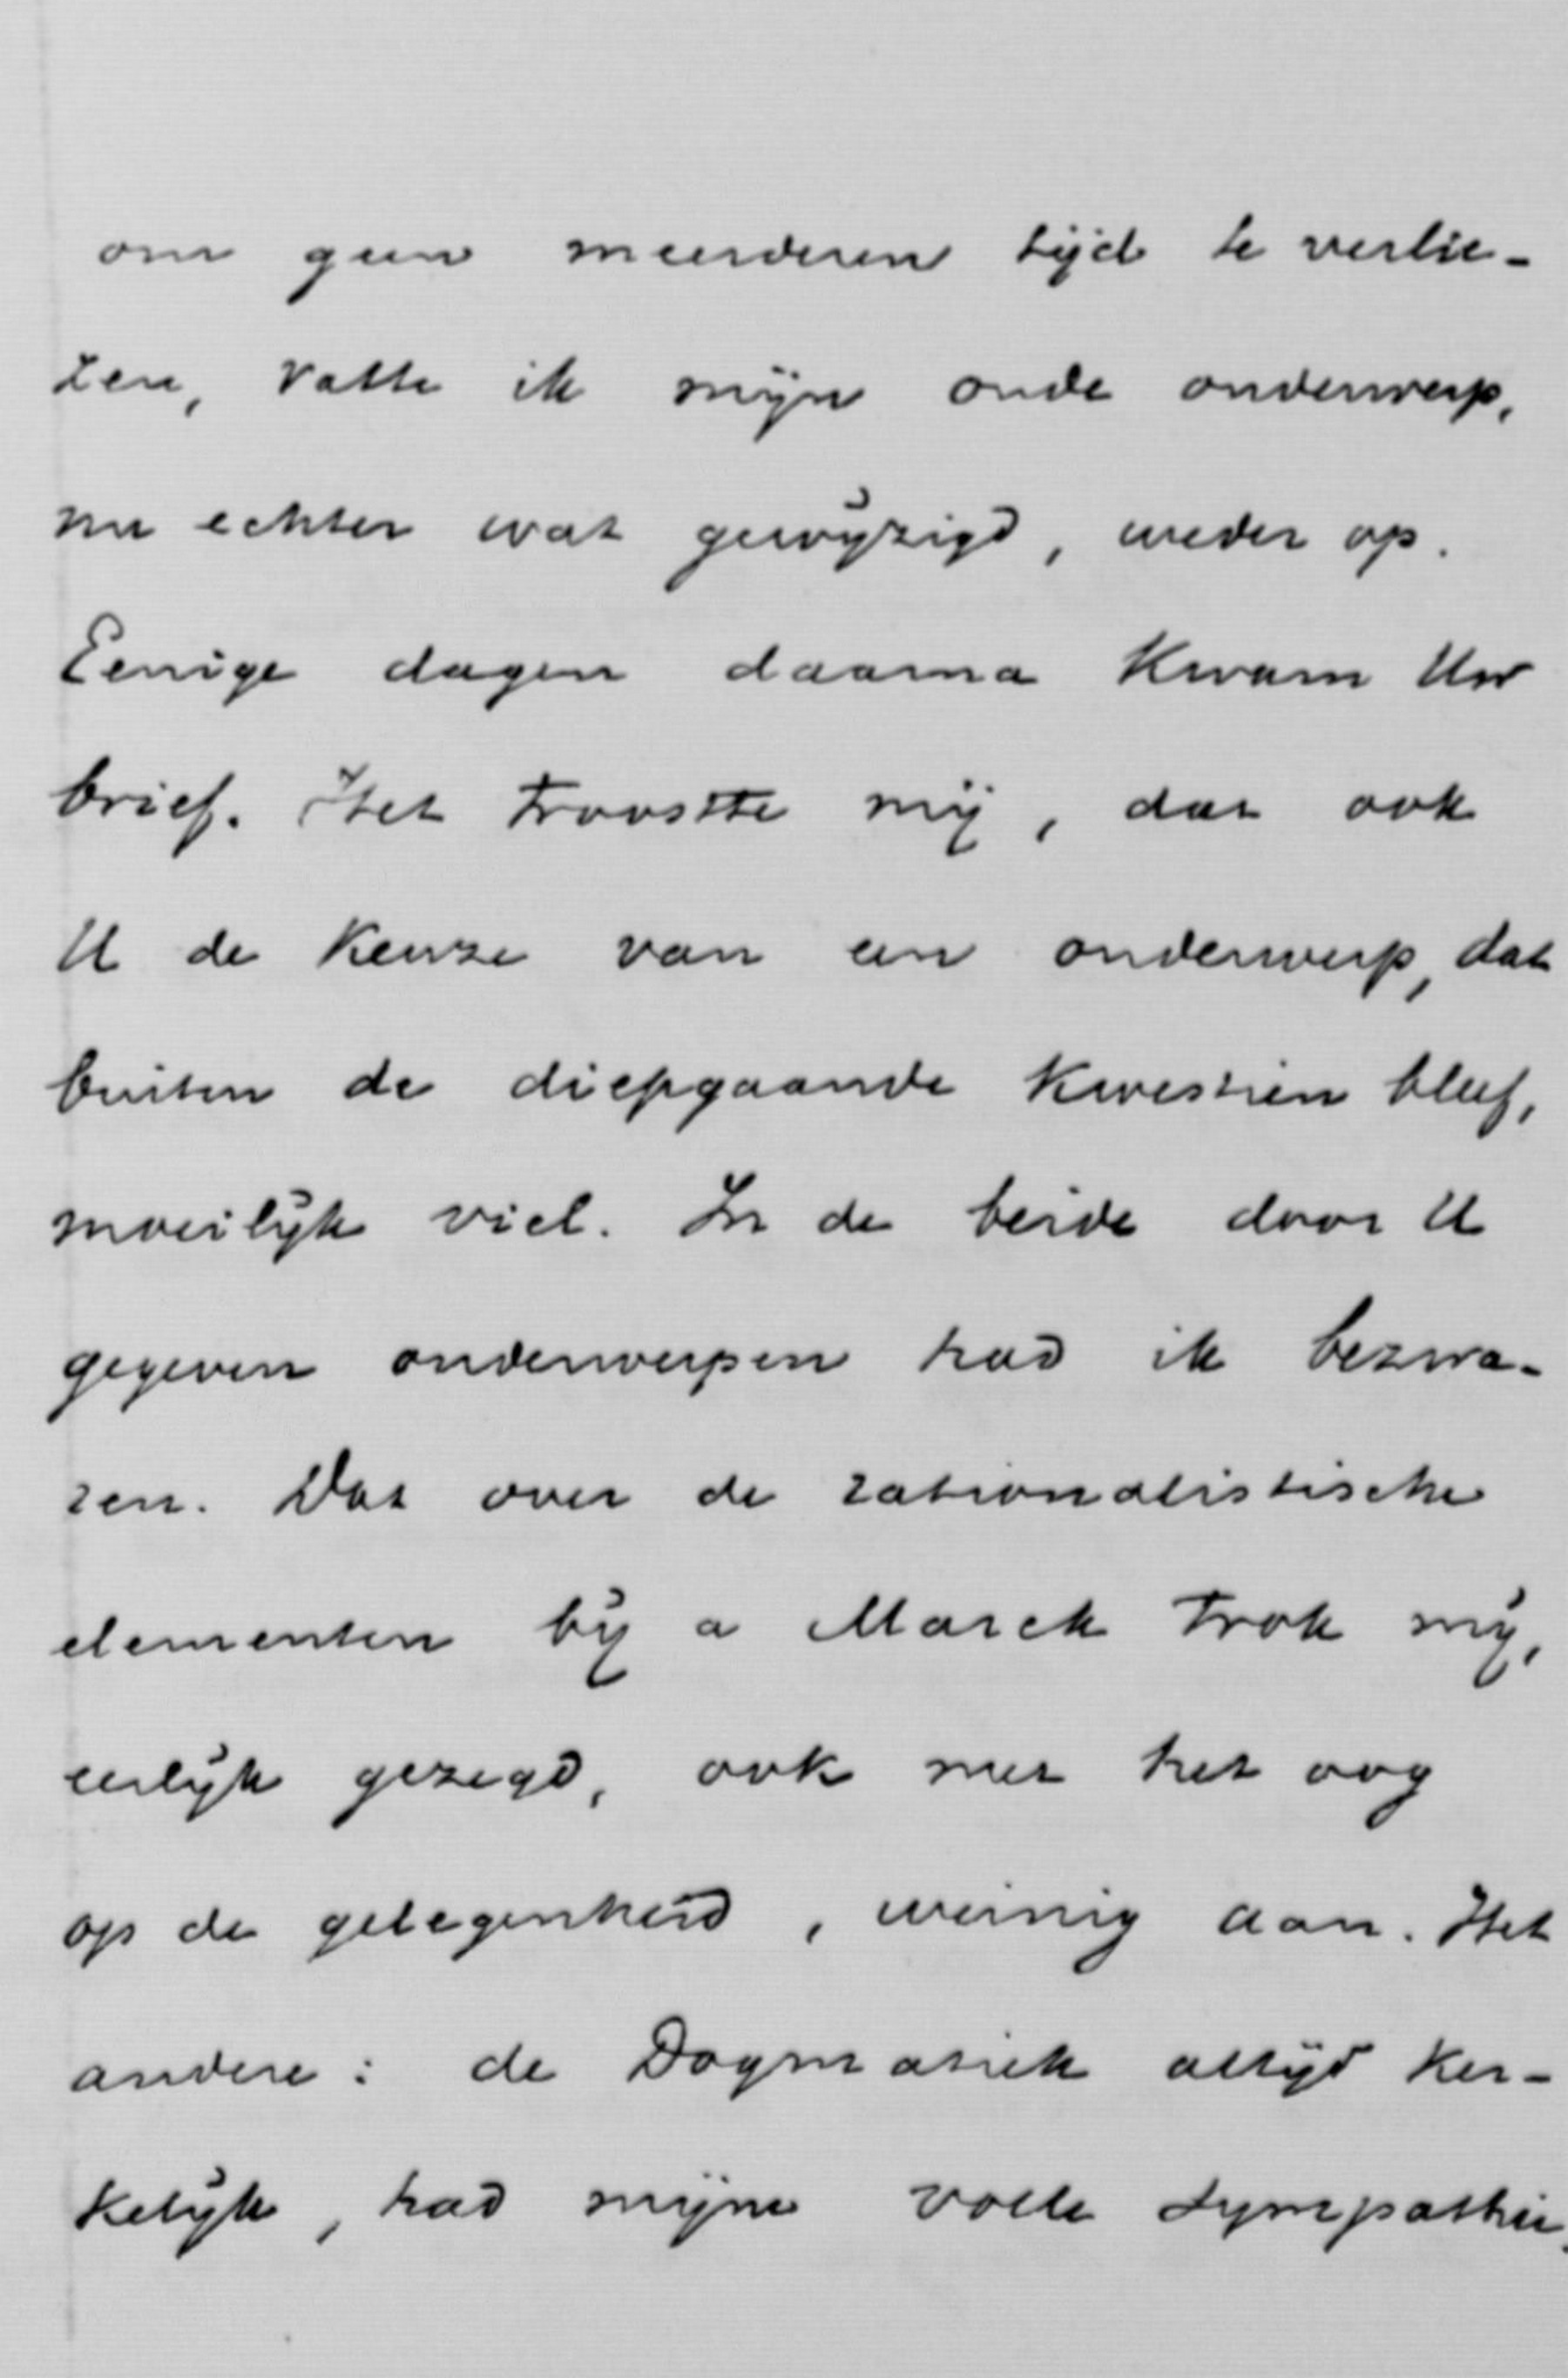 om geen meerderen tijd te verlie-
zen, vatte ik mijn oude onderwerp,
nu echter wat gewijzigd, weder op.
Eenige dagen daarna kwam Uw
brief. Het troostte mij, dat ook
U de keuze van een onderwerp, dat
buiten de diepgaande kwestien bleef,
moeilijk viel. In de beide door U
gegeven onderwerpen had ik bezwa-
ren. Dat over de rationalistische
elementen bij a Marck trok mij,
eerlijk gezegd, ook met het oog
op de gelegenheid, weinig aan. Het
andere: de Dogmatiek altijd ker-
kelijk, had mijne volle sympathie.